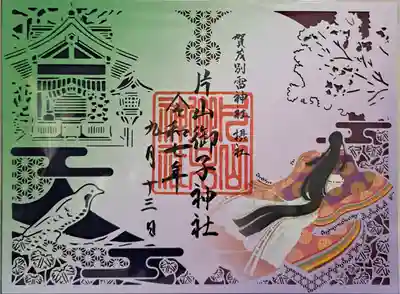 賀茂別雷神社 摂社
片山御子神社
令和七年
九月十三日